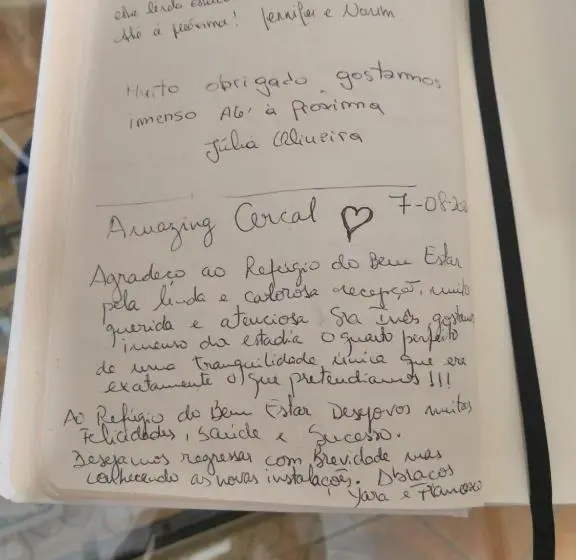 linda
Até à próxima! Jennifer e Narim
Muito obrigado, gostamos
imenso Até à Proxima
Júlia Oliveira
Amazing Cercal ♡ 7-08-20
Agradeço ao Refúgio do Bem Estar
pela linda e calorosa recepção, muito
querida e atenciosa Sra Inês gostamos
imenso da estadia o quarto perfeito
de uma tranquilidade única que era
exatamente o que pretendíamos !!!
Ao Refúgio do Bem Estar Desejo vos muitas
Felicidades, Saúde e Sucesso.
Desejamos regressar com Brevidade mas
conhecendo as novas instalações. Abraços
Yara e